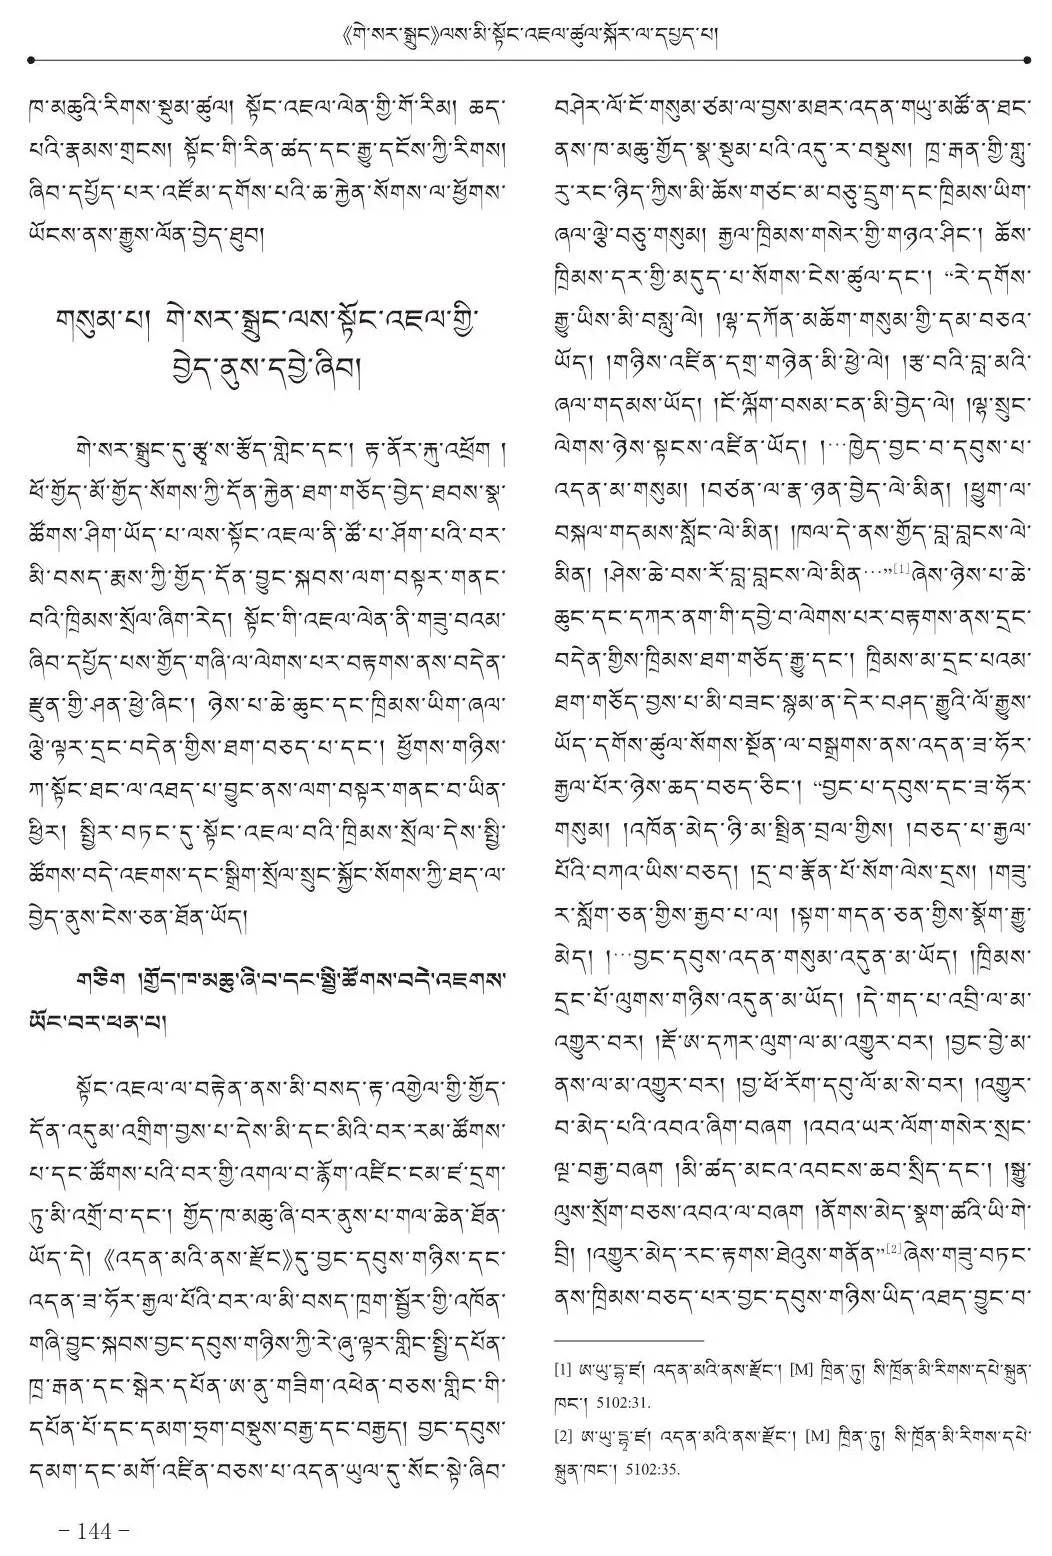 《གེ་སར་སྒྲུང》ལས་མི་སྟོང་འཇལ་ཚུལ་སྐོར་ལ་དཔྱད་པ།
ཁ་མཆུའི་རིགས་སྡུམ་ཚུལ། སྟོང་འཇལ་ལེན་གྱི་གོ་རིམ། ཆད་
པའི་རྣམས་གྲངས། སྟོང་གི་རིན་ཚད་དང་རྒྱུ་དངོས་ཀྱི་རིགས།
ཞིབ་དཔྱོད་པར་འཛོམ་དགོས་པའི་ཆ་རྐྱེན་སོགས་ལ་ཕྱོགས་
ཡོངས་ནས་རྒྱུས་ལོན་བྱེད་ཐུབ།
གསུམ་པ། གེ་སར་སྒྲུང་ལས་སྟོང་འཇལ་གྱི་
བྱེད་ནུས་དབྱེ་ཞིབ།
གེ་སར་སྒྲུང་དུ་རྩྭ་ས་རྩོད་གླེང་དང་། རྟ་ནོར་རྐུ་འཕྲོག །
ཕོ་གྱོད་མོ་གྱོད་སོགས་ཀྱི་དོན་རྐྱེན་ཐག་གཅོད་བྱེད་ཐབས་སྣ་
ཚོགས་ཤིག་ཡོད་པ་ལས་སྟོང་འཇལ་ནི་ཚོ་པ་ཤོག་པའི་བར་
མི་བསད་རྨས་ཀྱི་གྱོད་དོན་བྱུང་སྐབས་ལག་བསྟར་གནང་
བའི་ཁྲིམས་སྲོལ་ཞིག་རེད། སྟོང་གི་འཇལ་ལེན་ནི་གཟུ་བའམ་
ཞིབ་དཔྱོད་པས་གྱོད་གཞི་ལ་ལེགས་པར་བརྟགས་ནས་བདེན་
རྫུན་གྱི་ཤན་ཕྱེ་ཞིང་། ཉེས་པ་ཆེ་ཆུང་དང་ཁྲིམས་ཡིག་ཞལ་
ལྕེ་ལྟར་དྲང་བདེན་གྱིས་ཐག་བཅད་པ་དང་། ཕྱོགས་གཉིས་
ཀ་སྟོང་ཐང་ལ་འཐད་པ་བྱུང་ནས་ལག་བསྟར་གནང་བ་ཡིན་
ཕྱིར། སྤྱིར་བཏང་དུ་སྟོང་འཇལ་བའི་ཁྲིམས་སྲོལ་དེས་སྤྱི་
ཚོགས་བདེ་འཇགས་དང་སྒྲིག་སྲོལ་སྲུང་སྐྱོང་སོགས་ཀྱི་ཐད་ལ་
བྱེད་ནུས་ངེས་ཅན་ཐོན་ཡོད།
གཅིག །གྱོད་ཁ་མཆུ་ཞི་བ་དང་སྤྱི་ཚོགས་བདེ་འཇགས་
ཡོང་བར་ཕན་པ།
སྟོང་འཇལ་ལ་བརྟེན་ནས་མི་བསད་རྟ་འགྱེལ་གྱི་གྱོད་
དོན་འདུམ་འགྲིག་བྱས་པ་དེས་མི་དང་མིའི་བར་རམ་ཚོགས་
པ་དང་ཚོགས་པའི་བར་གྱི་འགལ་བ་རྙོག་འཛིང་ངམ་ཛ་དྲག་
ཏུ་མི་འགྲོ་བ་དང་། གྱོད་ཁ་མཆུ་ཞི་བར་ནུས་པ་གལ་ཆེན་ཐོན་
ཡོད་དེ། 《འདན་མའི་ནས་རྫོང》དུ་བྱང་དབུས་གཉིས་དང་
འདན་ཟ་ཧོར་རྒྱལ་པོའི་བར་ལ་མི་བསད་ཁྲག་སྦྱོར་གྱི་འཁོན་
གཞི་བྱུང་སྐབས་བྱང་དབུས་གཉིས་ཀྱི་རེ་ཞུ་ལྟར་གླིང་སྤྱི་དཔོན་
ཁྲ་རྒན་དང་སྒེར་དཔོན་ཨ་ནུ་གཟིག་འཕེན་བཅས་གླིང་གི་
དཔོན་པོ་དང་དམག་ཧྲག་བསྡུས་བརྒྱ་དང་བརྒྱད། བྱང་དབུས་
དམག་དང་མགོ་འཛིན་བཅས་པ་འདན་ཡུལ་དུ་སོང་སྟེ་ཞིབ་
བཤེར་ལོ་ངོ་གསུམ་ཙམ་ལ་བྱས་མཐར་འདན་གཡུ་མཚོ་ན་ཐང་
ནས་ཁ་མཆུ་གྱོད་སྣ་སྡུམ་པའི་འདུ་ར་བསྡུས། ཁྲ་རྒན་གྱི་གླུ་
རུ་རང་ཉིད་ཀྱིས་མི་ཆོས་གཙང་མ་བཅུ་དྲུག་དང་ཁྲིམས་ཡིག་
ཞལ་ལྕེ་བཅུ་གསུམ། རྒྱལ་ཁྲིམས་གསེར་གྱི་གཉའ་ཤིང་། ཆོས་
ཁྲིམས་དར་གྱི་མདུད་པ་སོགས་ངེས་ཚུལ་དང་། “རེ་དགོས་
རྒྱུ་ཡིས་མི་བསླུ་ལེ། །ལྷ་དཀོན་མཆོག་གསུམ་གྱི་དམ་བཅའ་
ཡོད། །གཉིས་འཛིན་དགྲ་གཉེན་མི་ཕྱེ་ལེ། །རྩ་བའི་བླ་མའི་
ཞལ་གདམས་ཡོད། །ངོ་ལྐོག་བསམ་ངན་མི་བྱེད་ལེ། །ལྷ་སྲུང་
ལེགས་ཉེས་སྟངས་འཛིན་ཡོད། །…ཁྱེད་བྱང་བ་དབུས་པ་
འདན་མ་གསུམ། །བཙན་ལ་རྣ་ཉན་བྱེད་ལེ་མིན། །ཕྱུག་ལ་
བསྐལ་གདམས་སློང་ལེ་མིན། །ཁལ་དེ་ནས་གྱོད་བླ་བླངས་ལེ་
མིན། །ཤེས་ཆེ་བས་རོ་བླ་བླངས་ལེ་མིན…”[1]ཞེས་ཉེས་པ་ཆེ་
ཆུང་དང་དཀར་ནག་གི་དབྱེ་བ་ལེགས་པར་བརྟགས་ནས་དྲང་
བདེན་གྱིས་ཁྲིམས་ཐག་གཅོད་རྒྱུ་དང་། ཁྲིམས་མ་དྲང་པའམ་
ཐག་གཅོད་བྱས་པ་མི་བཟང་སྙམ་ན་དེར་བཤད་རྒྱུའི་ལོ་རྒྱུས་
ཡོད་དགོས་ཚུལ་སོགས་སྔོན་ལ་བསྒྲགས་ནས་འདན་ཟ་ཧོར་
རྒྱལ་པོར་ཉེས་ཆད་བཅད་ཅིང་། “བྱང་པ་དབུས་དང་ཟ་ཧོར་
གསུམ། །འཁོན་མེད་ཉི་མ་སྤྲིན་བྲལ་གྱིས། །བཅད་པ་རྒྱལ་
པོའི་བཀའ་ཡིས་བཅད། །དྲ་བ་རྣོན་པོ་སོག་ལེས་དྲས། །གཟུ་
ར་སློག་ཅན་གྱིས་རྒྱབ་པ་ལ། །སྟག་གདན་ཅན་གྱིས་སྣོག་རྒྱུ་
མེད། །…བྱང་དབུས་འདན་གསུམ་འདུན་མ་ཡོད། །ཁྲིམས་
དྲང་པོ་ལུགས་གཉིས་འདུན་མ་ཡོད། །དེ་གད་པ་འབྲི་ལ་མ་
འགྱུར་བར། །རྡོ་ཨ་དཀར་ལུག་ལ་མ་འགྱུར་བར། །བྱང་བྱེ་མ་
ནས་ལ་མ་འགྱུར་བར། །བྱ་ཕོ་རོག་དབུ་ལོ་མ་སེ་བར། །འགྱུར་
བ་མེད་པའི་འབའ་ཞིག་བཞག །འབའ་ཡར་ལོག་གསེར་སྲང་
ལྔ་བརྒྱ་བཞག །མི་ཚད་མངའ་འབངས་ཆབ་སྲིད་དང་། །སྒྱུ་
ལུས་སྲོག་བཅས་འབའ་ལ་བཞག །ནོགས་མེད་སྣག་ཚའི་ཡི་གེ་
བྲི། །འགྱུར་མེད་རང་རྟགས་ཐེའུས་གནོན”[2]ཞེས་གཟུ་བཏང་
ནས་ཁྲིམས་བཅད་པར་བྱང་དབུས་གཉིས་ཡིད་འཐད་བྱུང་བ་
[1] ཨ་ཡུ་དྷྭ་ཛ། འདན་མའི་ནས་རྫོང་། [M] ཁྲིན་ཏུ། སི་ཁྲོན་མི་རིགས་དཔེ་སྐྲུན་
ཁང་། 5102:31.
[2] ཨ་ཡུ་དྷྭ་ཛ། འདན་མའི་ནས་རྫོང་། [M] ཁྲིན་ཏུ། སི་ཁྲོན་མི་རིགས་དཔེ་
སྐྲུན་ཁང་། 5102:35.
- 144 -